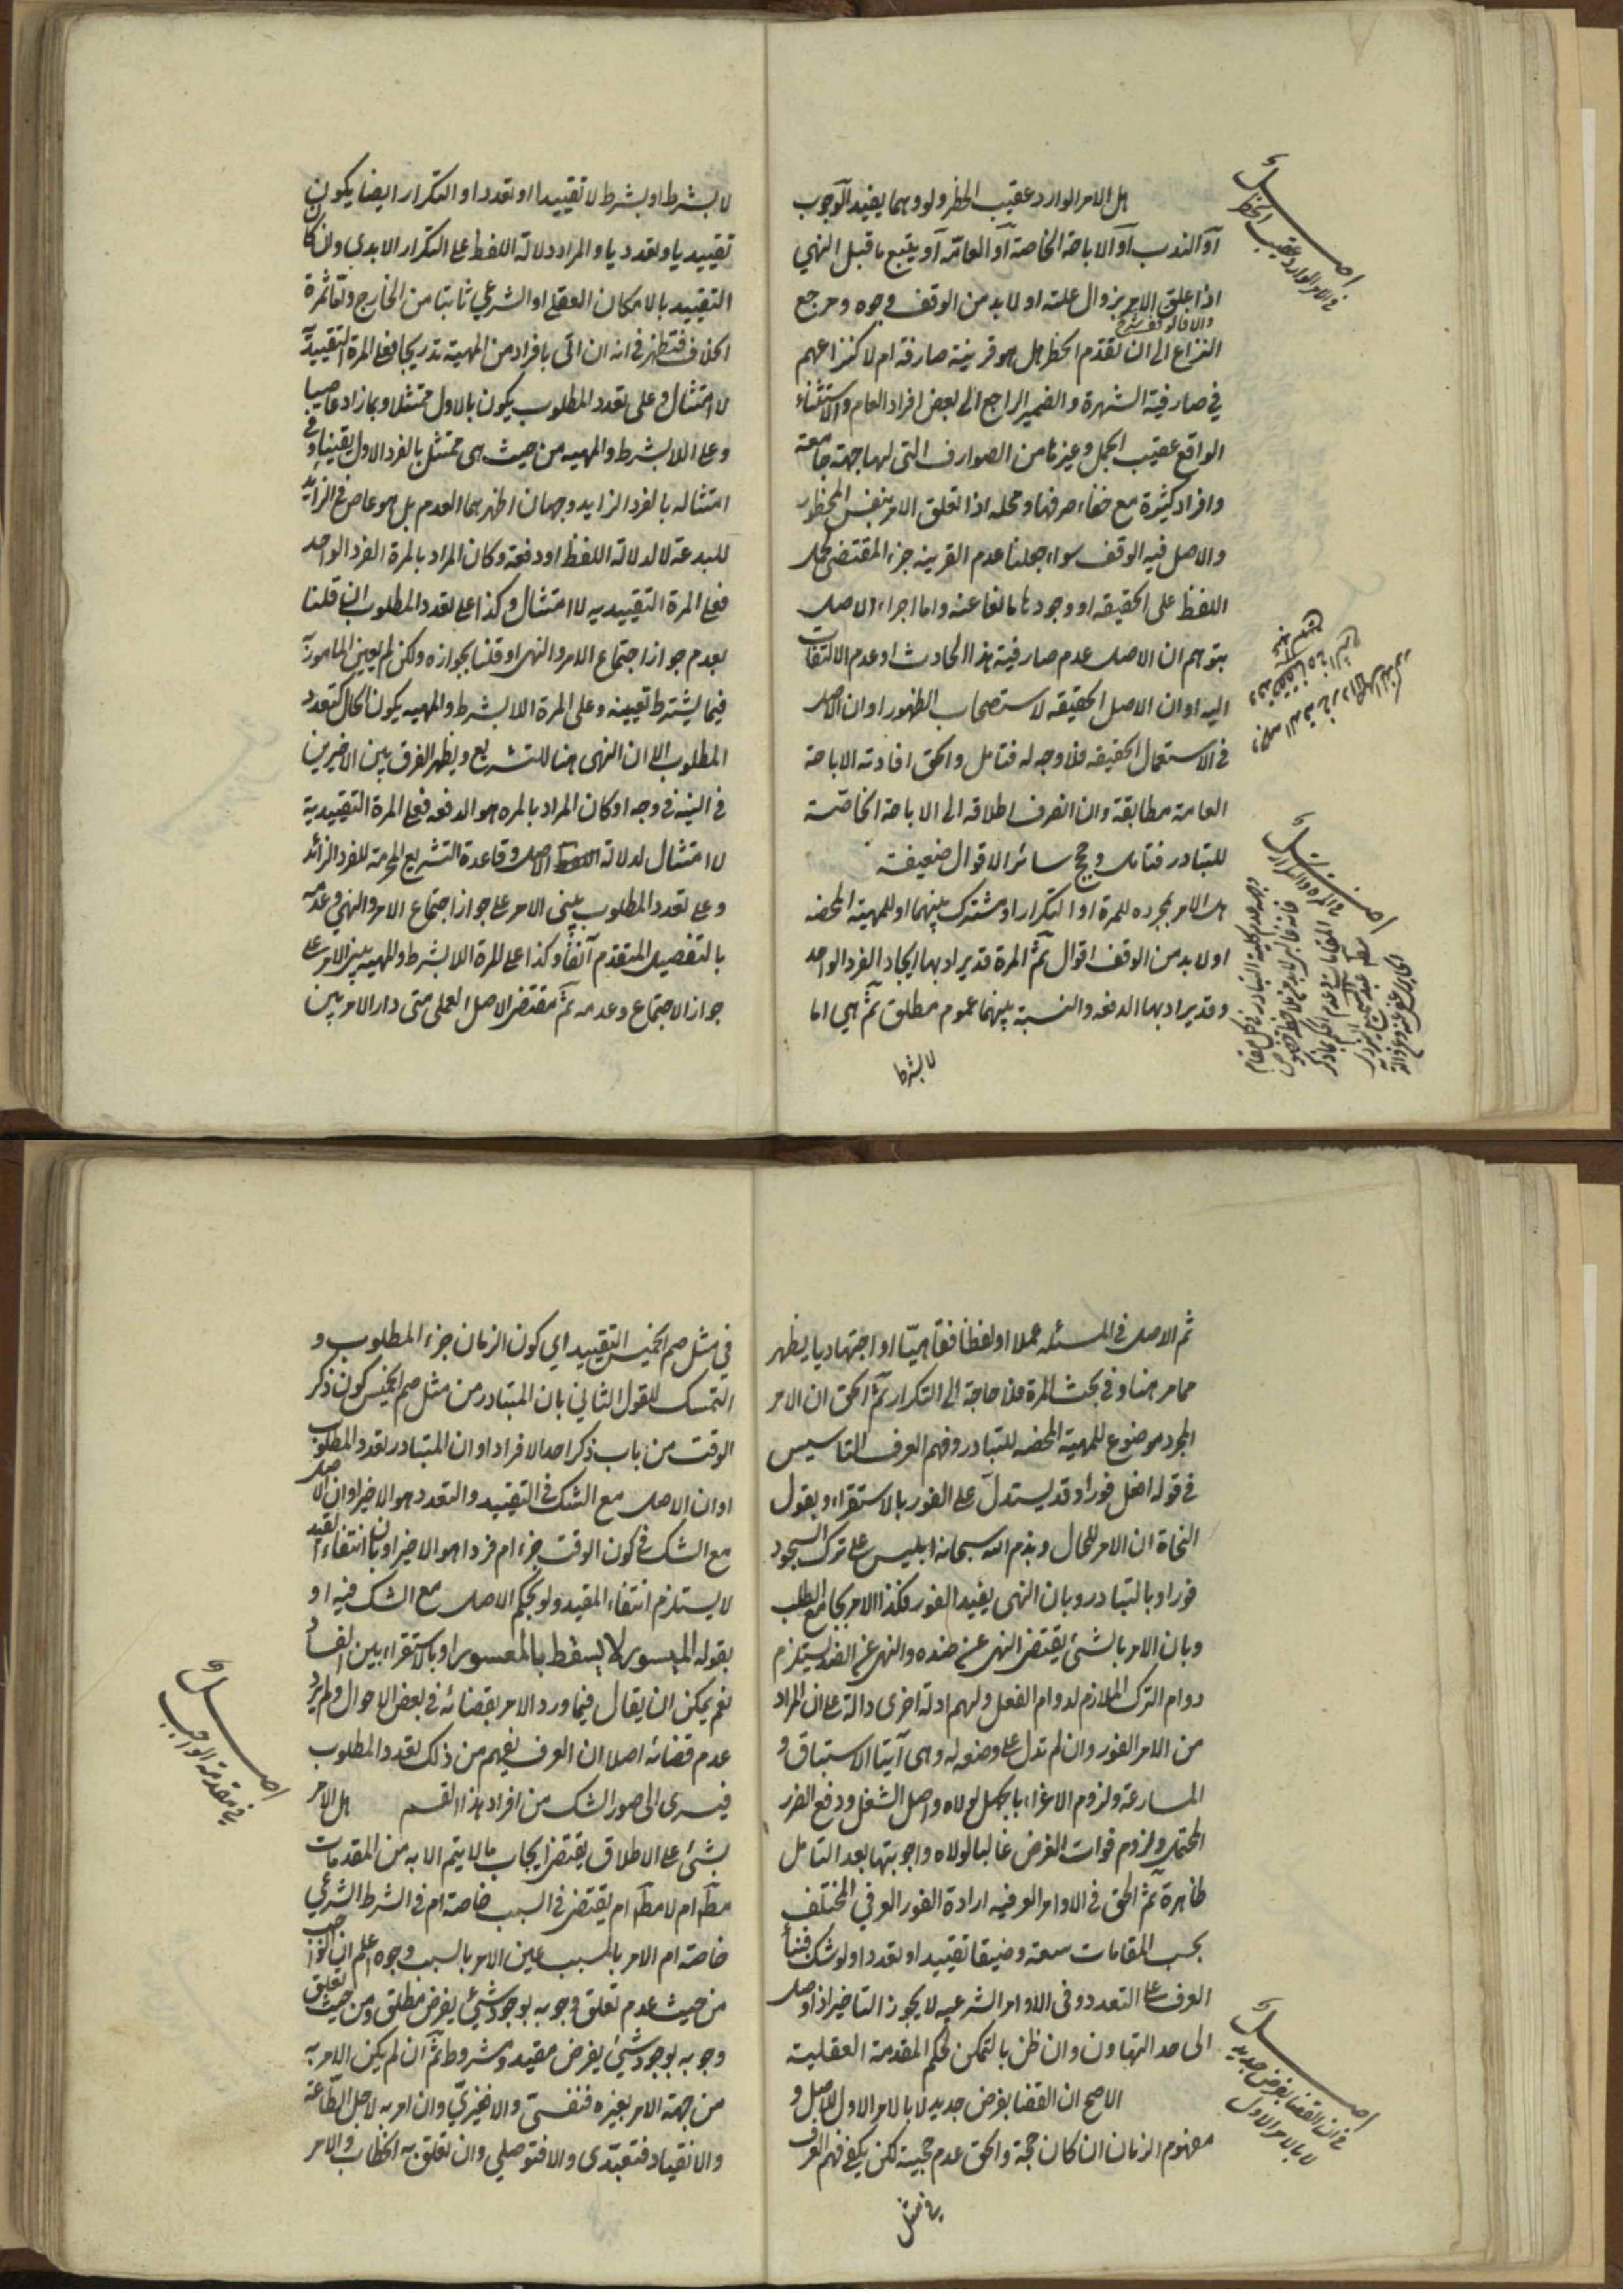 هل الامر الوارد عقيب الحظر ولو وهما يفيد الوجوب
او الندب او الاباحة الخاصة او العامة او يتبع ما قبل النهي
اذا علق الامر بزوال علته او لا بد من الوقف وجوه ومرجع
والا فالوقف
النزاع الى ان تقدم الحظر هل هو قرينة صارفة ام لا كنزاعهم
في صارفية الشهرة والضمير الراجع الى بعض افراد العام والاستثناء
الواقع عقيب الجمل وغيرها من الصوارف التى لها جهة جامعة
وافراد كثيرة مع خفاء صرفها ومحله اذا تعلق الامر بنفس المحظور
والاصل فيه الوقف سواء جعلنا عدم القرينه جزء المقتضى لحمل
اللفظ على الحقيقه او وجودها مانعا عنه واما اجراء الاصل
بتوهم ان الاصل عدم صارفية هذا الحادث او عدم الالتفات
اليه او ان الاصل الحقيقه لاستصحاب الظهور او ان الاصل
فى الاستعمال الحقيقه فلا وجه له فتامل والحق افادته الاباحة
العامة مطابقة وان انصرف اطلاقه الى الاباحة الخاصة
للتبادر فتامل وحجج سائر الاقوال ضعيفة
هل الامر بمجرده للمرة او التكرار او مشترك بينهما او للمهية المحضه
او لا بد من الوقف اقوال ثم المرة قد يراد بها ايجاد الفرد الواحد
وقد يراد بها الدفعه والنسبة بينهما عموم مطلق ثم هي اما
لا بشرط
اصل
فى الامر الوارد عقيب الحظر
اصل
فى المرة والتكرار
لا بشرط او بشرط لا تقييدا او تعددا والتكرار ايضا يكون
تقييديا وتعدديا والمراد دلالة اللفظ على التكرار الابدى وان كان
التقييد بالامكان العقلى او الشرعي ثابتا من الخارج واما ثمرة
الخلاف فتظهر فى انه ان اتى بافراد من المهية تدريجا فعلى المرة التقييدية
لا امتثال وعلى تعدد المطلوب يكون بالاول ممتثلا وبما زاد عاصيا
وعلى اللا بشرط والمهيه من حيث هى ممتثل بالفرد الاول يقينا وفى
امتثاله بالفرد الزايد وجهان اظهرهما العدم بل هو عاص فى الزايد
للبدعة لا لدلالة اللفظ او دفعة وكان المراد بالمرة الفرد الواحد
فعلى المرة التقييديه لا امتثال وكذا على تعدد المطلوب ان قلنا
بعدم جواز اجتماع الامر والنهى او قلنا بجوازه ولكن لم يعين المامور به
فيما يشترط تعيينه وعلى المرة اللا بشرط والمهيه يكون الحال كتعدد
المطلوب الا ان النهى هنا للتشريع ويظهر الفرق بين الاخيرين
فى النية فى وجه او كان المراد بالمره هو الدفعه فعلى المرة التقييدية
لا امتثال لدلالة الاصل وقاعدة التشريع الحرمة للفرد الزائد
وعلى تعدد المطلوب يبنى الامر على جواز اجتماع الامر والنهي وعدمه
بالتفصيل المتقدم آنفا وكذا على المرة اللا بشرط والمهيه يبنى الامر على
جواز الاجتماع وعدمه ثم مقتضى الاصل العملى متى دار الامر بين
ثم الاصل فى المسئله عملا او لفظا فقاهيّا او اجتهاديا يظهر
مما مر هنا وفى بحث المرة فلا حاجة الى التكرار ثم الحق ان الامر
المجرد موضوع للمهية المحضه للتبادر وفهم العرف التاسيس
فى قوله افعل فورا وقد يستدل على الفور بالاستقراء وبقول
النحاة ان الامر للحال وبذم الله سبحانه ابليس على ترك السجود
فورا وبالتبادر وبان النهى يفيد الفور فكذا الامر بجامع الطلب
وبان الامر بالشئ يقتضى النهى عن ضده والنهى عن الضد يستلزم
دوام الترك الملازم لدوام الفعل ولهم ادلة اخرى دالة على ان المراد
من الامر الفور وان لم تدل على وضعه له وهى آيتا الاستباق و
المسارعة ولزوم الاغراء بالجهل لولاه واصل الشغل ودفع الضرر
المحتمل ولزوم فوات الغرض غالبا لولاه واجوبتها بعد التامل
ظاهرة ثم الحق فى الاوامر العرفيه ارادة الفور العرفي المختلف
بحسب المقامات سعة وضيقا تقييدا او تعددا ولو شك فبناء
العرف على التعدد وفى الاوامر الشرعيه لا يجوز التاخير اذا وصل
الى حد التهاون وان ظن بالتمكن لحكم المقدمة العقلية
الاصح ان القضا بفرض جديد لا بالامر الاول للاصل و
مفهوم الزمان ان كان حجة والحق عدم حجيته لكن يكفى فهم العرف
فى مثل
اصل
فى ان القضا بفرض جديد
لا بالامر الاول
في مثل صم الخميس التقييد اي كون الزمان جزء المطلوب و
التمسك للقول الثاني بان المتبادر من مثل صم الخميس كون ذكر
الوقت من باب ذكر احد الافراد او ان المتبادر تعدد المطلوب
او ان الاصل مع الشك فى التقييد والتعدد هو الاخير او ان الاصل
مع الشك فى كون الوقت جزء ام فردا هو الاخير او بان انتفاء القيد
لا يستلزم انتفاء المقيد ولو بحكم الاصل مع الشك فيه او
بقوله الميسور لا يسقط بالمعسور او بالاستقراء بين الفساد
نعم يمكن ان يقال فيما ورد الامر بقضائه فى بعض الاحوال ولم يرد
عدم قضائه اصلا ان العرف يفهم من ذلك تعدد المطلوب
فيسرى الى صور الشك من افراد هذا القسم هل الامر
بشئ على الاطلاق يقتضى ايجاب ما لا يتم الا به من المقدمات
مطلقا ام لا مطلقا ام يقتضى فى السبب خاصة ام فى الشرط الشرعي
خاصة ام الامر بالمسبب عين الامر بالسبب وجوه اعلم ان الواجب
من حيث عدم تعلق وجوبه بوجود شئ يفرض مطلق ومن حيث تعلق
وجوبه بوجود شئ يفرض مقيد ومشروط ثم ان لم يكن الامر به
من جهة الامر بغيره فنفسى والا فغيري وان امر به لاجل الطاعة
والانقياد فتعبدى والا فتوصلي وان تعلق به الخطاب والامر
اصل
فى مقدمة الواجب